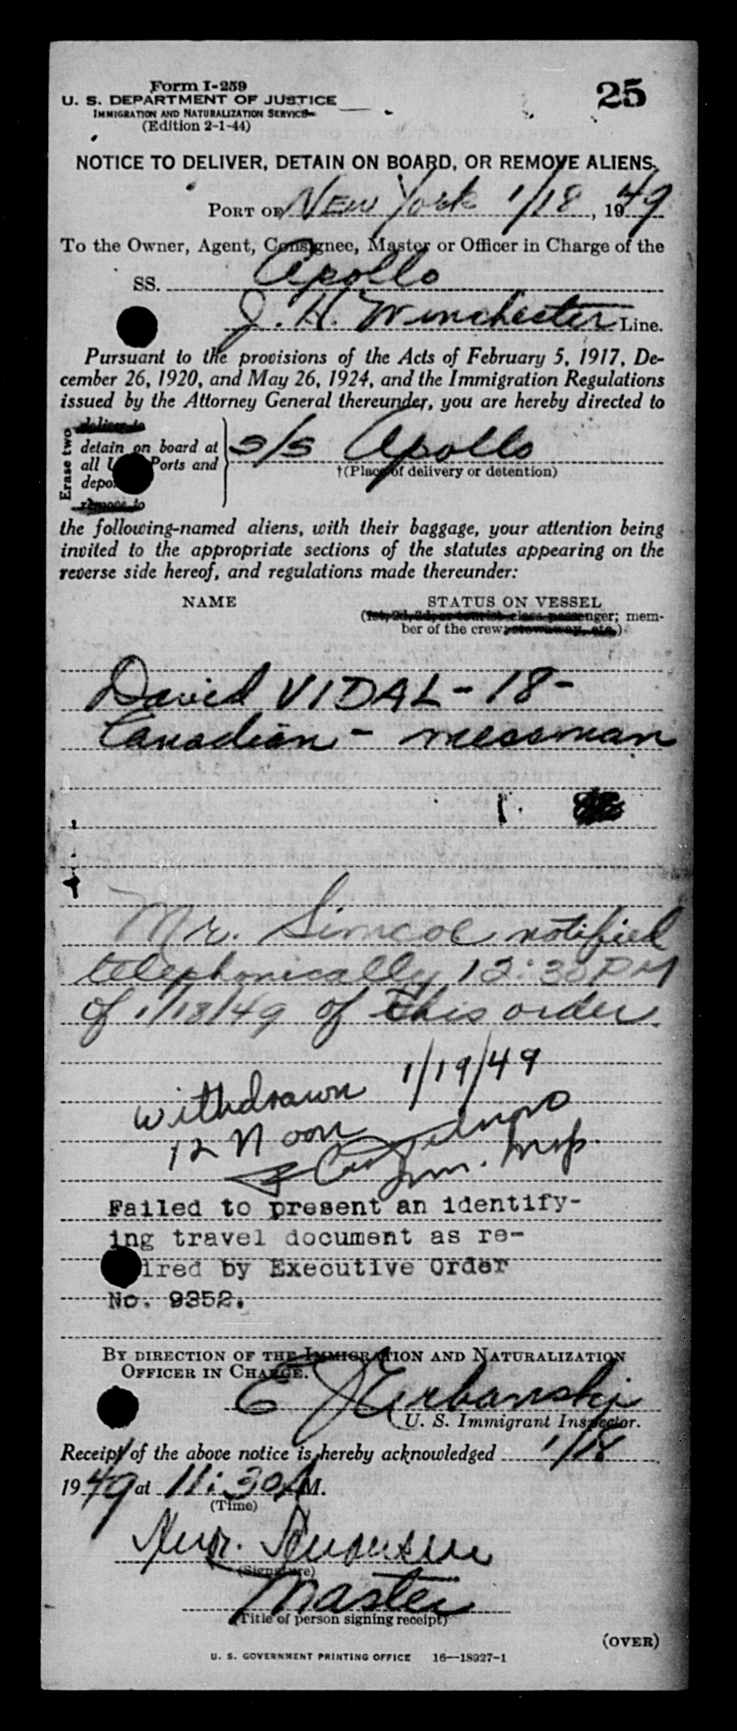 Form I-259
25
U. S. DEPARTMENT OF JUSTICE
IMMIGRATION AND NATURALIZATION SERVICE
(Edition 2-1-44)
NOTICE TO DELIVER, DETAIN ON BOARD, OR REMOVE ALIENS
PORT OF New York 1/18, 1949
To the Owner, Agent, Consignee, Master or Officer in Charge of the
SS. Apollo
J. H. Winchester Line.
Pursuant to the provisions of the Acts of February 5, 1917, De-
cember 26, 1920, and May 26, 1924, and the Immigration Regulations
issued by the Attorney General thereunder, you are hereby directed to
Erase two
deliver to
detain on board at
all U Ports and
depo
remove to
s/s Apollo
†(Place of delivery or detention)
the following-named aliens, with their baggage, your attention being
invited to the appropriate sections of the statutes appearing on the
reverse side hereof, and regulations made thereunder:
NAME
STATUS ON VESSEL
(1st, 2d, 3d, or tourist class passenger; mem-
ber of the crew; stowaway, etc.)
David VIDAL - 18 -
Canadian - messman
Mr. Simcoe notified
telephonically 12:30 PM
of 1/18/49 of this order.
withdrawn 1/19/49
12 Noon
Imm. Insp.
Failed to present an identify-
ing travel document as re-
ired by Executive Order
No. 9352.
BY DIRECTION OF THE IMMIGRATION AND NATURALIZATION
OFFICER IN CHARGE.
E J Urbanski
U. S. Immigrant Inspector.
Receipt of the above notice is hereby acknowledged 1/18
1949 at 11:30 A M.
(Time)
(Signature)
Master
(Title of person signing receipt)
(OVER)
U. S. GOVERNMENT PRINTING OFFICE 16—18927-1